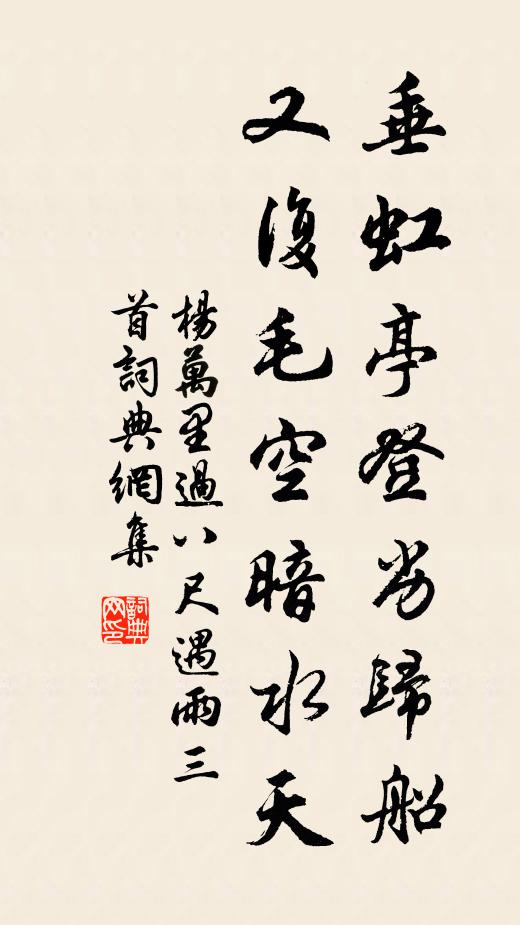 垂虹亭登劣歸船
又復毛空暗水天
楊萬里過八尺遇雨三
首詞典網集
詞典
网印